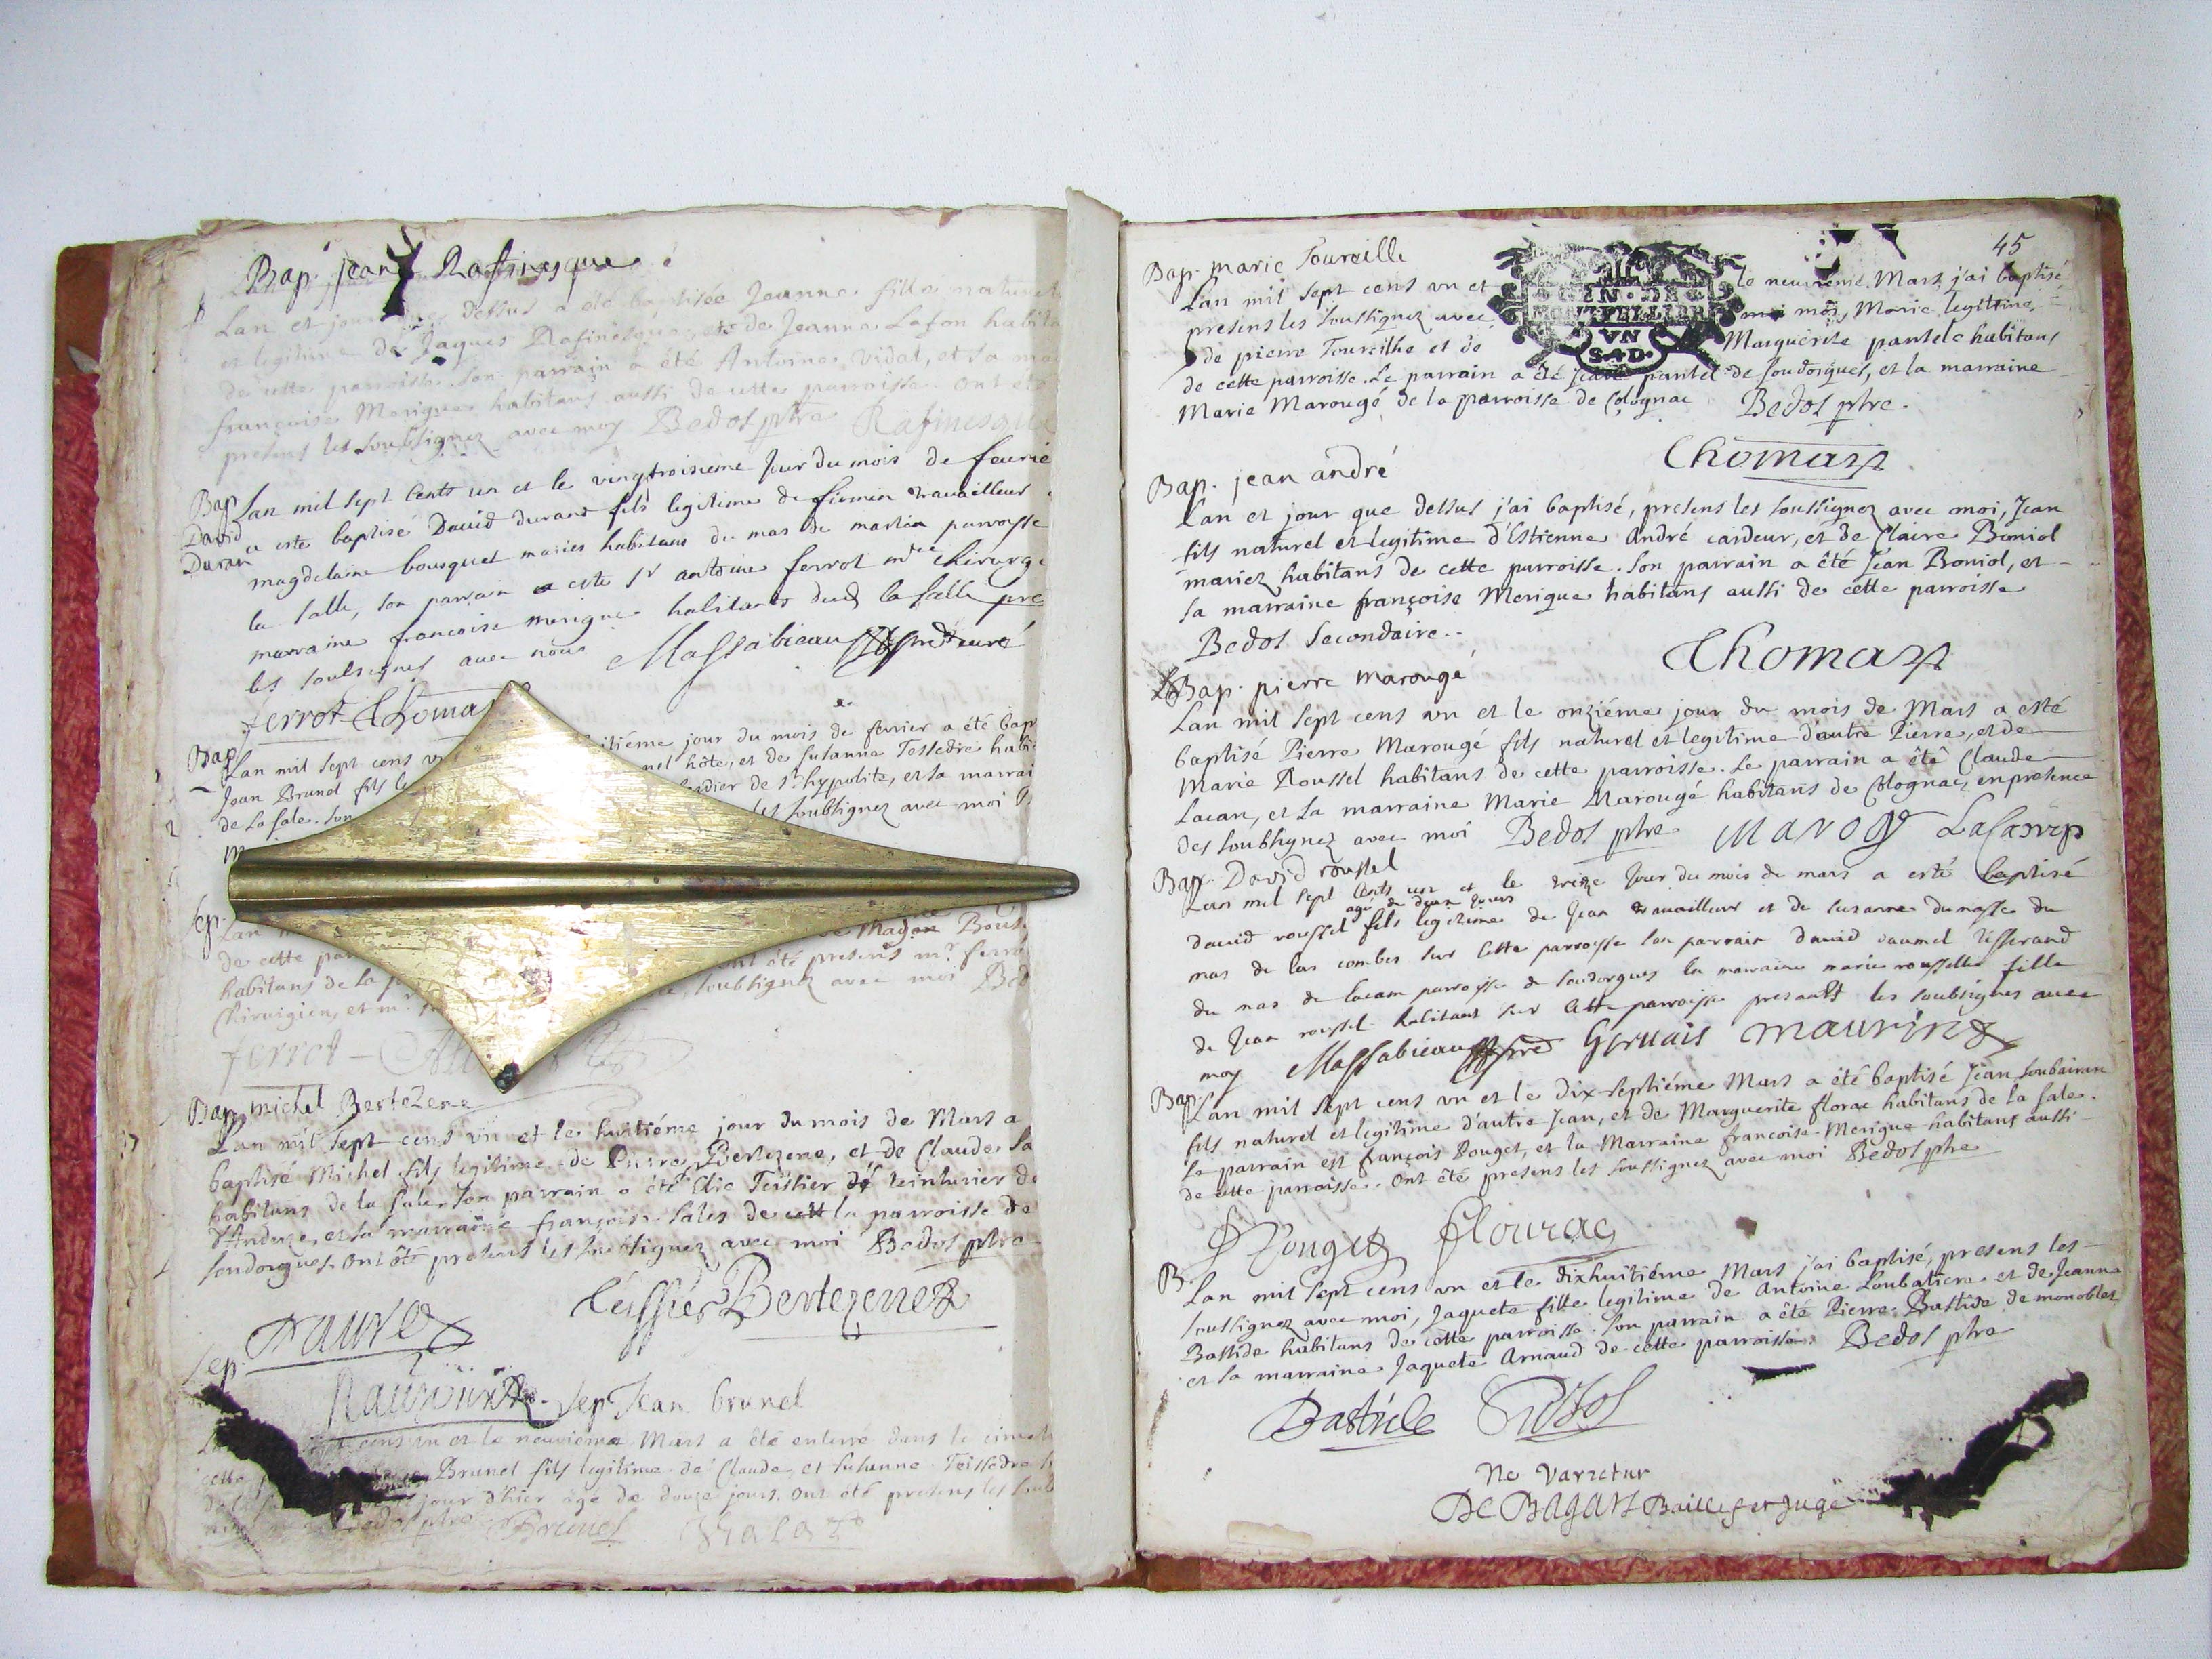 Bap. jeanne Rafinesque
Lan et jour que dessus a été baptisée Jeanne fille naturele
et legitime de Jaques Rafinesque et de Jeanne Lafon habita
de cette parroisse. son parrain a été Antoine Vidal, et sa ma
françoise Merigue habitans aussi de cette parroisse. ont été
presens les soubsignez avec moy Bedos ptre Rafinesque
Bap Lan mil sept cents un et le vingtroisieme jour du mois de feurie
David a este baptisé David durant fils legitime de firmin travailleur
Duran magdelaine bousquet maries habitans du mas de martin parroisse
la salle, son parrain a este sr antoine ferrot mtre chirurg
marraine francoise merigue habitants dud la salle pre
les soubsignes avec nous Massabieau curé
ferrot Thomas
Bap Lan mil sept cens vn itiéme jour du mois de fevrier a été bap
Jean Brunel fils le nel hôte, et de Susanne Tessedre habi
de la sale. son dier de st. hypolite, et sa marrai
les soubsignez avec moi
Sep.
Lan Magdn Bous
de cette par ont été presens mr. ferro
habitans de la soubsignez avec moi Bed
Chirurgien, et mr.
ferrot
Bap michel Bertezene
Lan mil sept cens vn et le huitiéme jour du mois de Mars a
baptisé Michel fils legitime de Pierre Bertezene, et de Claude Sa
habitans de la sale. son parrain a été Elie Teissier teinturier d
d'Anduze, et sa marraine françoise Sales de la parroisse de
soudorgues. ont été presens les soussignez avec moi Bedos ptre
Teissier Bertezene
Faure
Sep.
Sep Jean brunel
sept cens vn et le neuvieme Mars a été enterré dans le cimeti
cette Brunel fils legitime de Claude et Susanne Teissedre
jour d'hier âgé de douze jours. ont été presens les soub
Bedos ptre Brunel
45
Bap. marie Toureille
Lan mil sept cens vn et le neuviéme Mars j'ai baptisé
presens les soussignez avec moi, Marie legitime
de pierre Toureilhe et de Marguerite pantele habitans
de cette parroisse. Le parrain a été Jean pantel de soudorgues, et la marraine
Marie Marougé de la parroisse de Colognac Bedos ptre.
GEN·DE
MONTPELLIER
VN
S4D·
Thomas
Bap. jean andré
Lan et jour que dessus j'ai baptisé, presens les soussignez avec moi, Jean
fils naturel et legitime d'Estienne André cardeur, et de Claire Boniol
mariez habitans de cette parroisse. son parrain a été Jean Boniol, et
sa marraine françoise Merigue habitans aussi de cette parroisse
Bedos secondaire.
Thomas
Bap. pierre marougé
Lan mil sept cens vn et le onziéme jour du mois de Mars a esté
baptisé Pierre Marougé fils naturel et legitime d'autre Pierre, et de
Marie Roussel habitans de cette parroisse. Le parrain a été Claude
Lacan, et la marraine Marie Marougé habitans de Colognac, en presence
des soubsignez avec moi Bedos ptre
Bap David roussel
Lan mil sept cents un et le treize jour du mois de mars a esté baptisé
agé de deux jours
david roussel fils legitime de jean travailleur et de suzanne dumasse du
mas de las combes sur cette parroisse son parrain david daumel tisserand
du mas de lacam parroisse de soudorgues la marraine marie rousselle fille
de jean roussel habitant sur cette parroisse presants les soubsignes avec
moy Massabieau Gervais maurin
Bap. Lan mil sept cens vn et le dix-septiéme Mars a été baptisé Jean Soubeiran
fils naturel et legitime d'autre Jean, et de Marguerite florac habitans de la sale.
Le parrain est françois Pouget, et la Marraine francoise Merigue habitans aussi
de cette parroisse. ont été presens les soussignez avec moi Bedos ptre
Pouget flourac
B. Lan mil sept cens vn et le dixhuitiéme Mars j'ai baptisé, presens les
soussignez avec moi, Jaquete fille legitime de Antoine Loubatiere et de Jeanne
Bastide habitans de cette parroisse. son parrain a été Pierre Bastide de monoblet
et la marraine Jaquete Arnaud de cette parroisse. Bedos ptre
Bastide
Ne Varietur
De Bagars Baillif et Juge